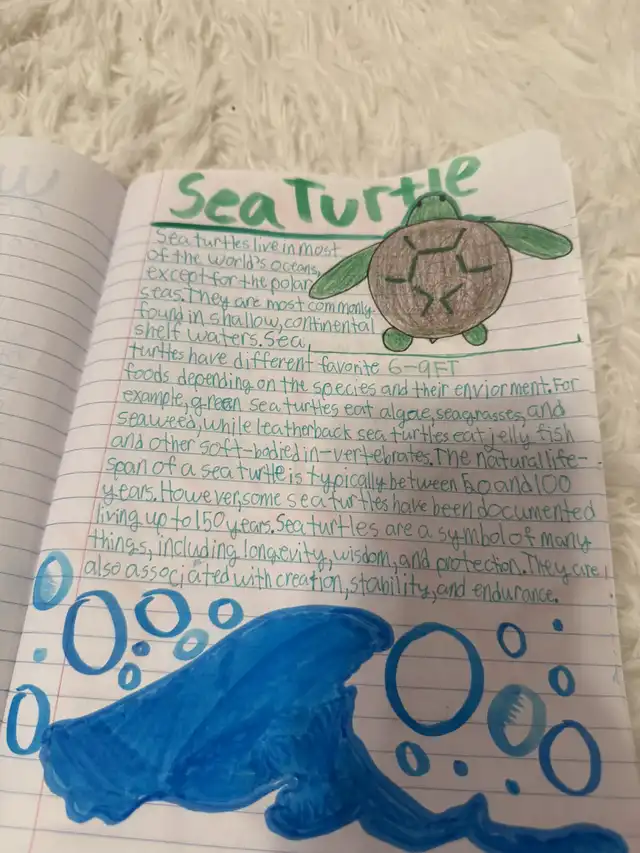 Sea Turtle
Sea turtles live in most
of the world's oceans,
except for the polar
seas. They are most commonly
found in shallow, continental
shelf waters. Sea
turtles have different favorite 6-9FT
foods depending on the species and their enviorment. For
example, green sea turtles eat algae, seagrasses, and
seaweed, while leatherback sea turtles eat jelly fish
and other soft-bodied in-vertebrates. The natural life-
span of a sea turtle is typically between 50 and 100
years. However, some sea turtles have been documented
living up to 150 years. Sea turtles are a symbol of many
things, including longevity, wisdom, and protection. They are
also associated with creation, stability, and endurance.